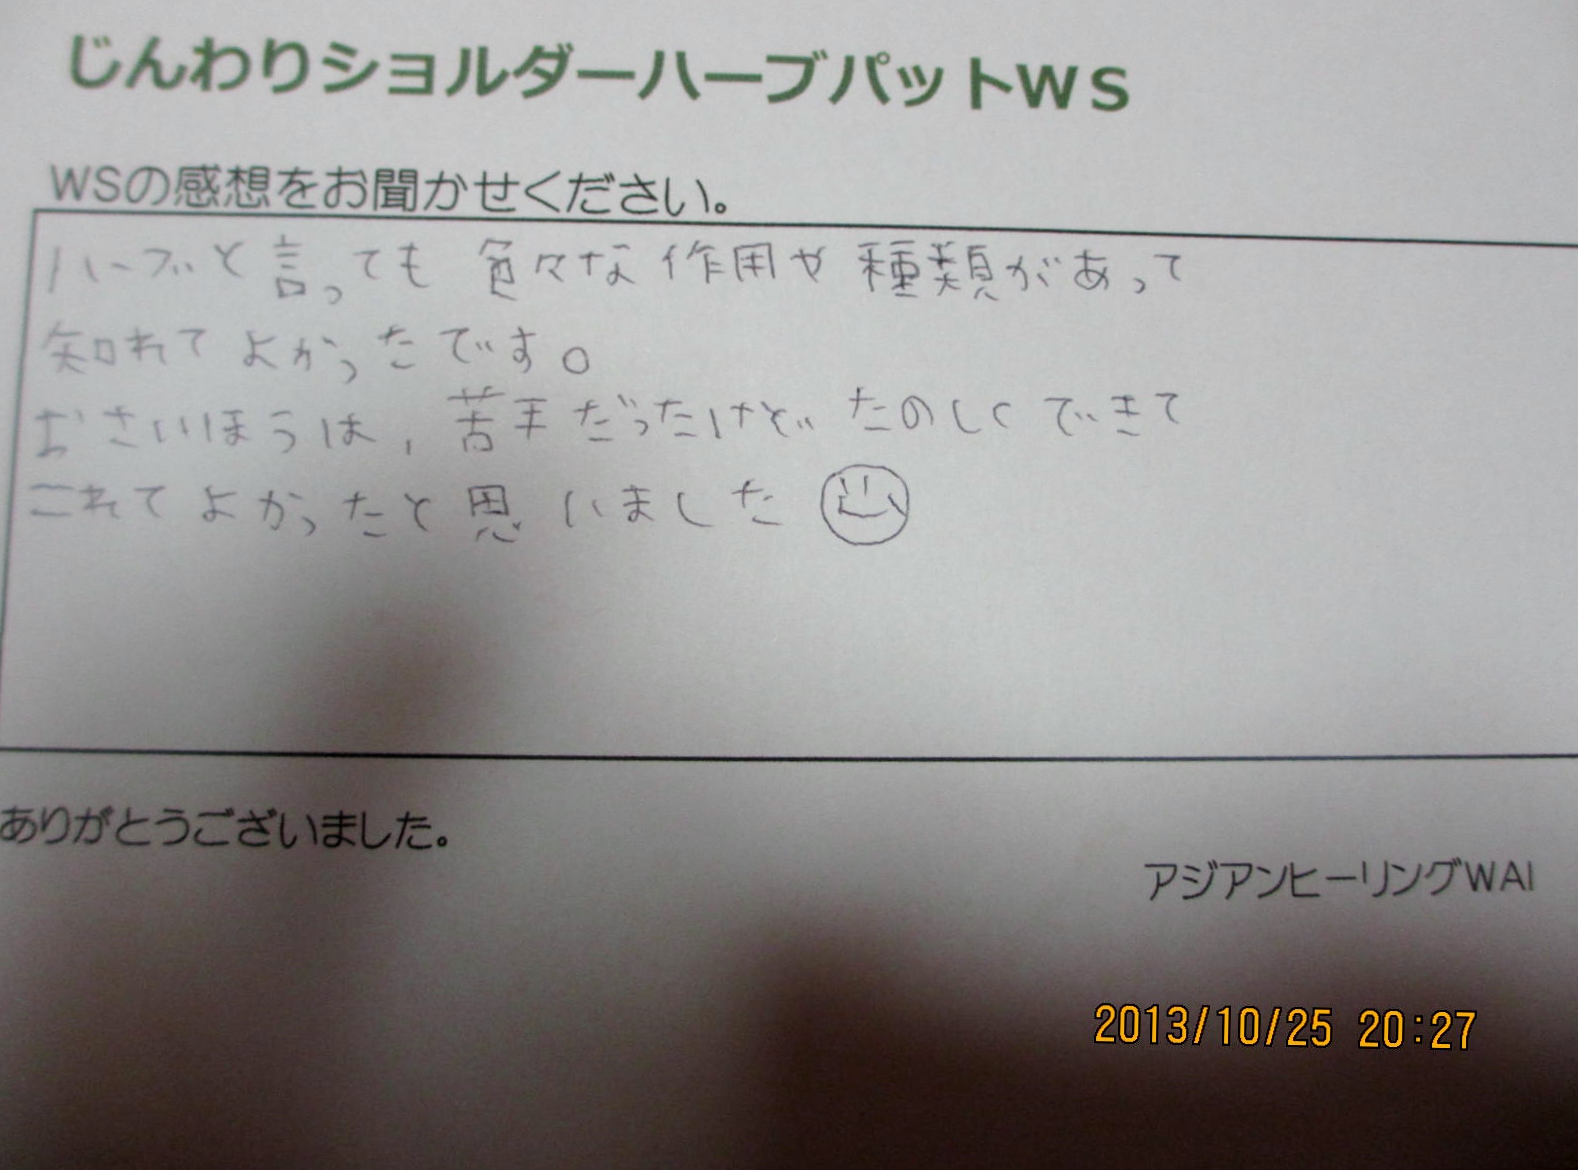 じんわりショルダーハーブパットWS
WSの感想をお聞かせください。
ハーブと言っても色々な作用や種類があって
知れてよかったです。
おさいほうは、苦手だったけどたのしくできて
これてよかったと思いました
ありがとうございました。
アジアンヒーリングWAI
2013/10/25 20:27